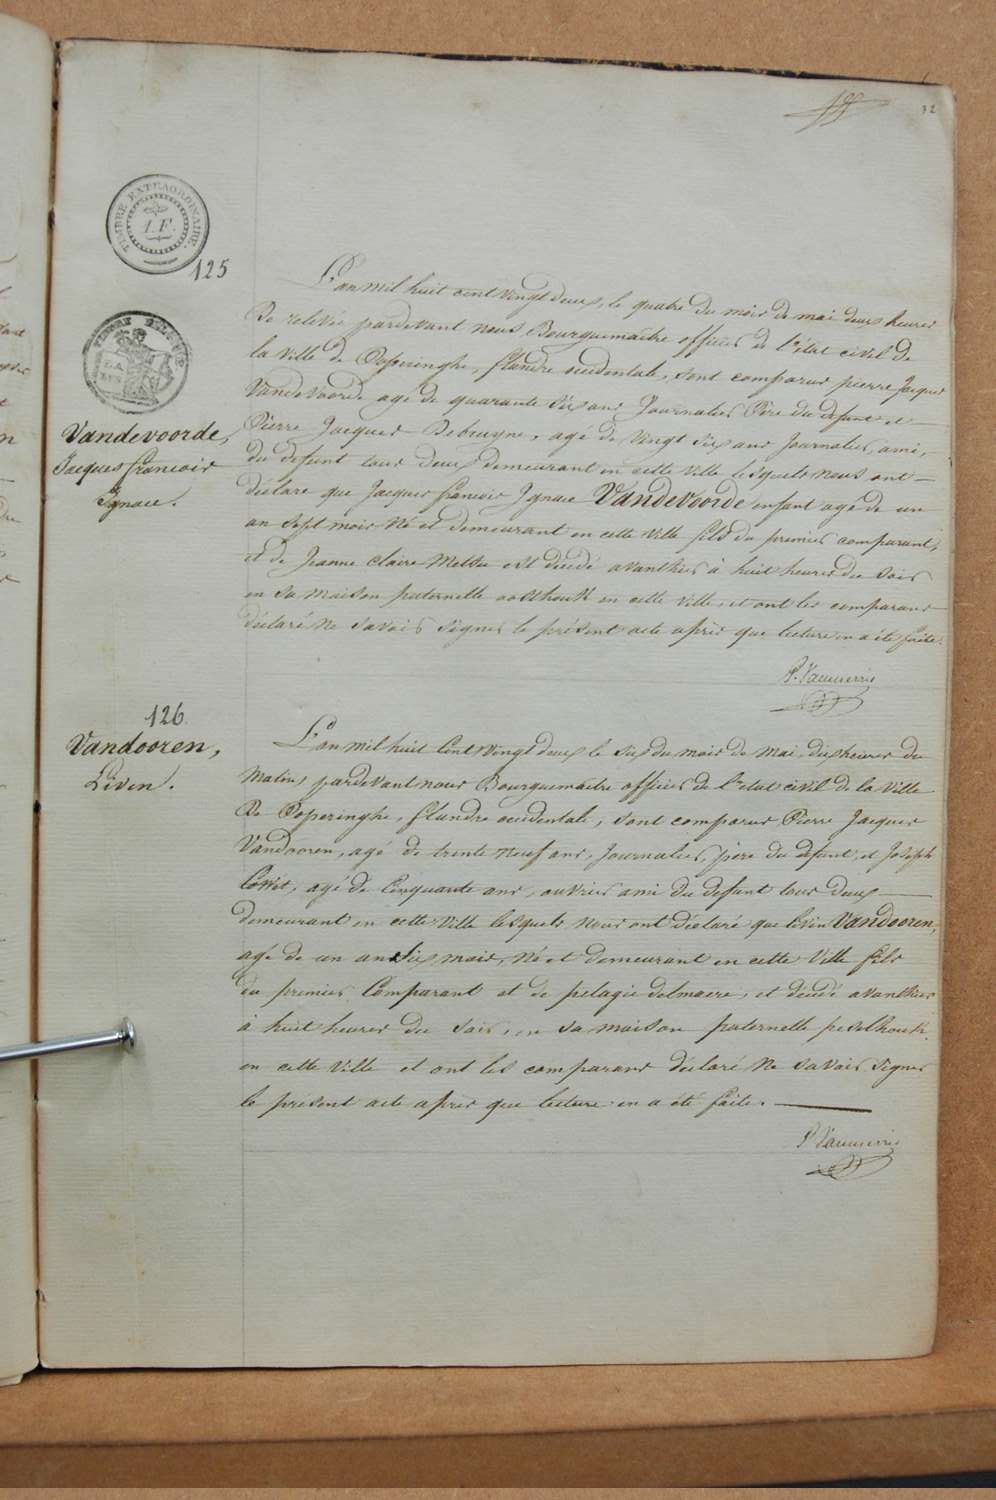 32
TIMBRE EXTRAORDINAIRE.
1.F.
125
L'an mil huit cent vingt deux, le quatre du mois de mai deux heures
de relevée pardevant nous Bourguemaitre officier de l'état civil de
la ville de Poperinghe, flandre occidentale, sont comparus pierre Jacques
Vandevoorde agé de quarante six ans Journalier Père du defunt et
Pierre Jacques Debruyne, agé de vingt six ans Journalier, ami,
du defunt tous deux demeurant en cette ville lesquels nous ont
déclaré que Jacques francois Ignace Vandevoorde enfant agé de un
an sept mois né et demeurant en cette ville fils du premier comparant,
et de Jeanne Claire est décédé avanthier à huit heures du soir
en sa maison paternelle oosthouk en cette ville, et ont les comparans
déclaré ne savoir signer le présent acte après que lecture en a été faite.
Vandevoorde,
Jacques francois
Ignace.
126
Vandooren,
Livin.
L'an mil huit Cent vingt deux le six du mois de mai, dix heures du
matin, pardevant nous Bourguemaitre officier de l'état civil de la ville
de Poperinghe, flandre occidentale, sont comparus Pierre Jacques
Vandooren, agé de trente neuf ans, Journalier, père du défunt, et Joseph
agé de Cinquante ans, ouvrier ami du defunt tous deux
demeurant en cette ville lesquels nous ont déclaré que livin Vandooren,
agé de un an six mois, né et demeurant en cette ville fils
du premier Comparant et de pelagie delmaere, et décédé avanthier
à huit heures du soir, en sa maison paternelle peselhouck
en cette ville et ont les comparans déclaré ne savoir signer
le present acte après que lecture en a été faite.